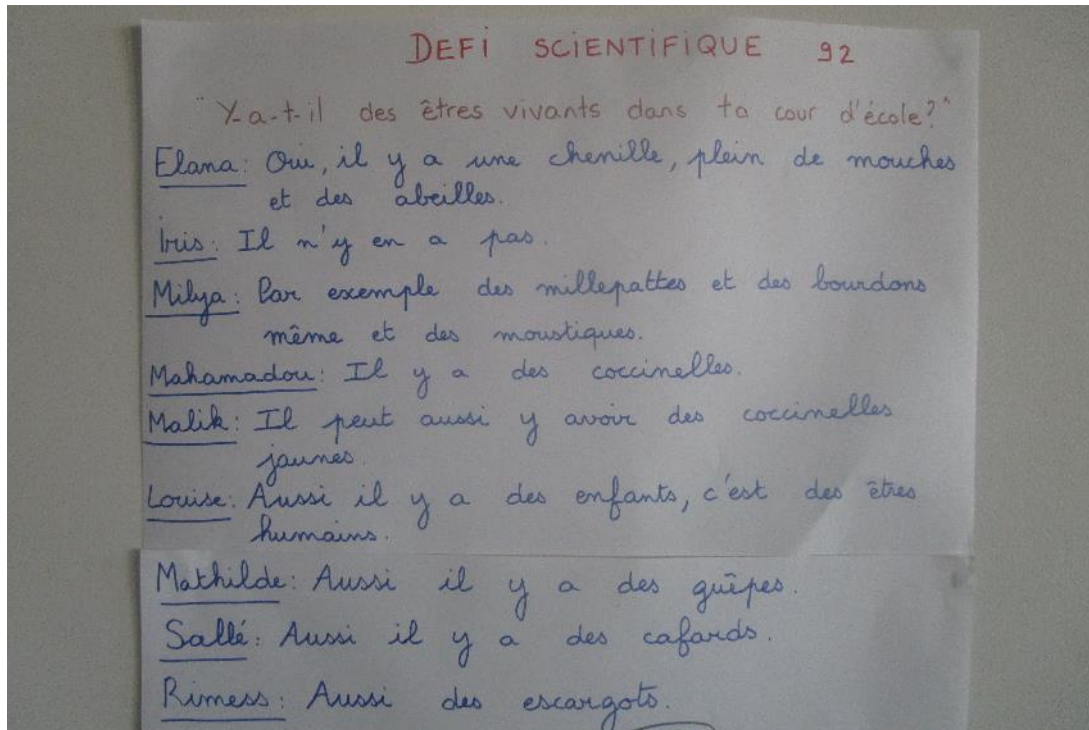 DEFI SCIENTIFIQUE 92
"Y-a-t-il des êtres vivants dans ta cour d'école?"
Elana: Oui, il y a une chenille, plein de mouches
et des abeilles.
Iris: Il n'y en a pas.
Milya: Par exemple des millepattes et des bourdons
même et des moustiques.
Mahamadou: Il y a des coccinelles.
Malik: Il peut aussi y avoir des coccinelles
jaunes.
Louise: Aussi il y a des enfants, c'est des êtres
humains.
Mathilde: Aussi il y a des guêpes.
Sallé: Aussi il y a des cafards.
Rimess: Aussi des escargots.